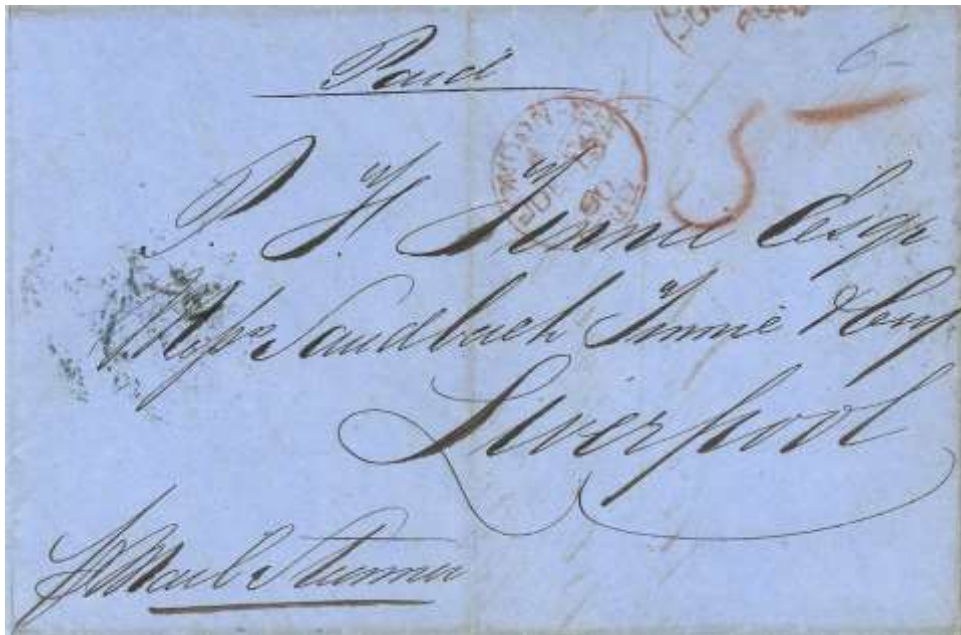 6
Paid
5
P. F. Tinné Esqr
Messrs Sandbach Tinné & Coy
Liverpool
pr Mail Steamer